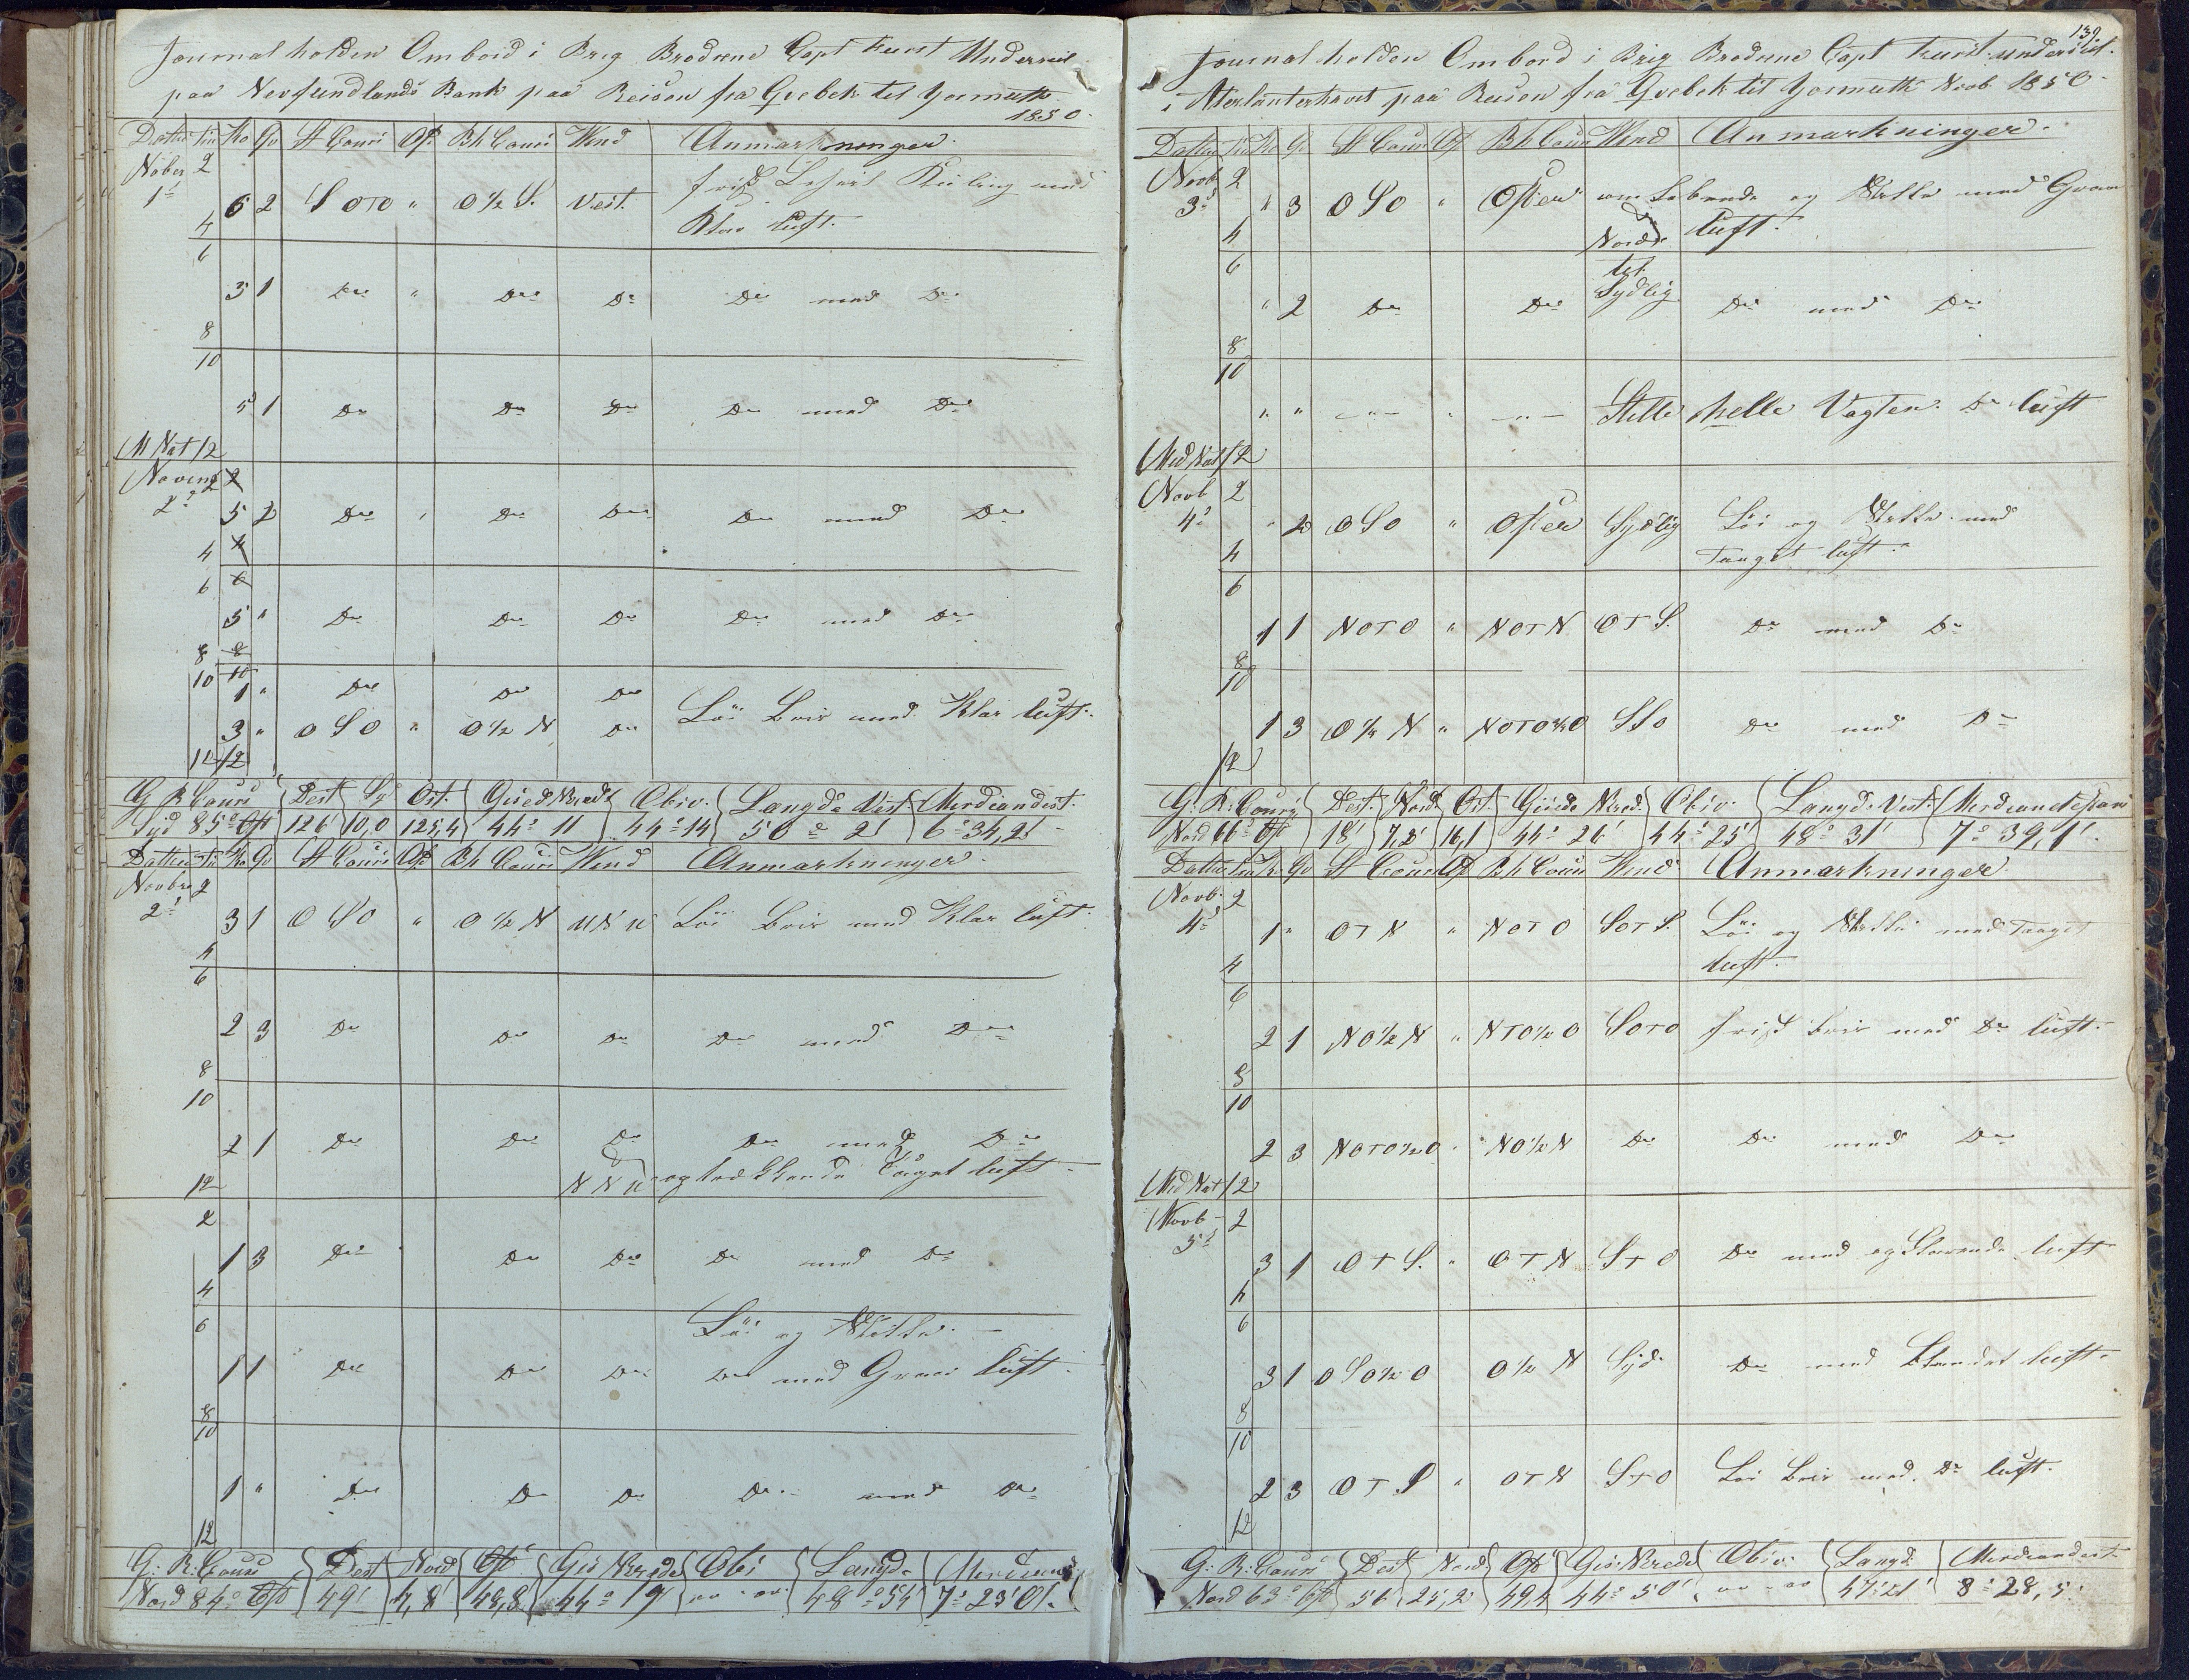 Journal holden Ombord i Brig Brødrene Capt Kurst Underseil
paa Nevfundlands Bank paa Reisen fra Qvebek til Yarmuth
1850
Datto Tii Ko Qv St Cours Af Bh Cours Vind Anmærkninger
Nober 2
1ſ 6 2 S O T O " O ½ S. Vest. frisk Kuling med
4 Klar luft.
6
3 1 Do " Do Do Do med Do
8
10
5 1 Do Do Do Do med Do
M Nat 12
Novemb 2
2 5 2 Do Do Do Do med Do
4
6
5 " Do Do Do Do med Do
8
10
1 " Do Do Do
3 " O S O " O ½ N Do Löi Bris med Klar luft
12
G R Cours Dest Sÿd Ost. Gised Brede Obsv. Langde Vest Meridiandist.
Syd 85° Ost 126 10,0 125,4 44° 11 44° 14 50° 21 6° 34,21
Datto Ti Ko Qv St Cours Af Bh Cours Vind Anmærkninger
Novbr 2
2 3 1 O S O " O ½ N Löi Bris med Klar luft
4
6
2 3 Do Do Do Do med Do
8
10
2 1 Do Do Do Do med Do
12 og trækkende Taaget luft
2
1 3 Do Do Do Do med Do
4
6 Löi og Stille
1 1 Do Do Do Do med Graa luft
8
10
1 " Do Do Do Do med Do
12
G: R: Cours Dest Nord Ost Gis Brede Obs Langde Meridiand
Nord 84° Ost 49' 4,8 48,8 44° 19 " " 48° 54' 7° 23'01.
139
Journal holden Ombord i Brig Brødrene Capt Kurst underseil.
i Atlanterhavet paa Reisen fra Qvebek til Yarmuth Novb 1850
Datto Tii Ko Qv St Cours Af Bh Cours Vind Anmærkninger
Novb 2
3 " 3 O S O " Osten om Løbende og Stille med Graa
4 Norden luft.
6 til
" 2 Do Do Sydlig Do med Do
8
10
" " " " " Stille helle Vagten. Do luft
Mid Nat 12
Novb 2
4 " 2 O S O " Osten Sydlig Löi og Stille med
4 Taaget luft.
6
1 1 N O T O " N O T N O T S. Do med Do
8
10
1 3 O ½ N " N O T O ½ O S S O Do med Do
12
G: R: Cours Dest. Nord Ost. Gisede Brede Obsv. Langde Vest. Meridiandistans
Nord 66° Ost 18' 7,2' 16,1 44° 26' 44° 25' 48° 31' 7° 39,1'.
Datto Tii K Qv St Cours Af Bh Cours Vind Anmærkninger
Novb. 2
4 1 " O T N " N O T O S O T S. Löi og Stille med Taaget
4 luft.
6
2 1 N O ½ N " N T O ½ O S O T O frisk Bris med Do luft.
8
10
2 3 N O T O ½ O " N O ½ N Do Do med Do
Mid Nat 12
Novb 2
5 3 1 O T S. " O T N S T O Do med og luft
4
6
3 1 O S O ½ O O ½ N Syd. Do med Blandet luft.
8
10
2 3 O T S " O T N S T O Löi Bris med Do luft.
12
G: R: Cours Dest Nord Ost Gis: Brede Obsv: Langd Meridiandist
Nord 63° Ost 56 25,2 49,4 44° 50' " " 47° 21' 8° 28,5.